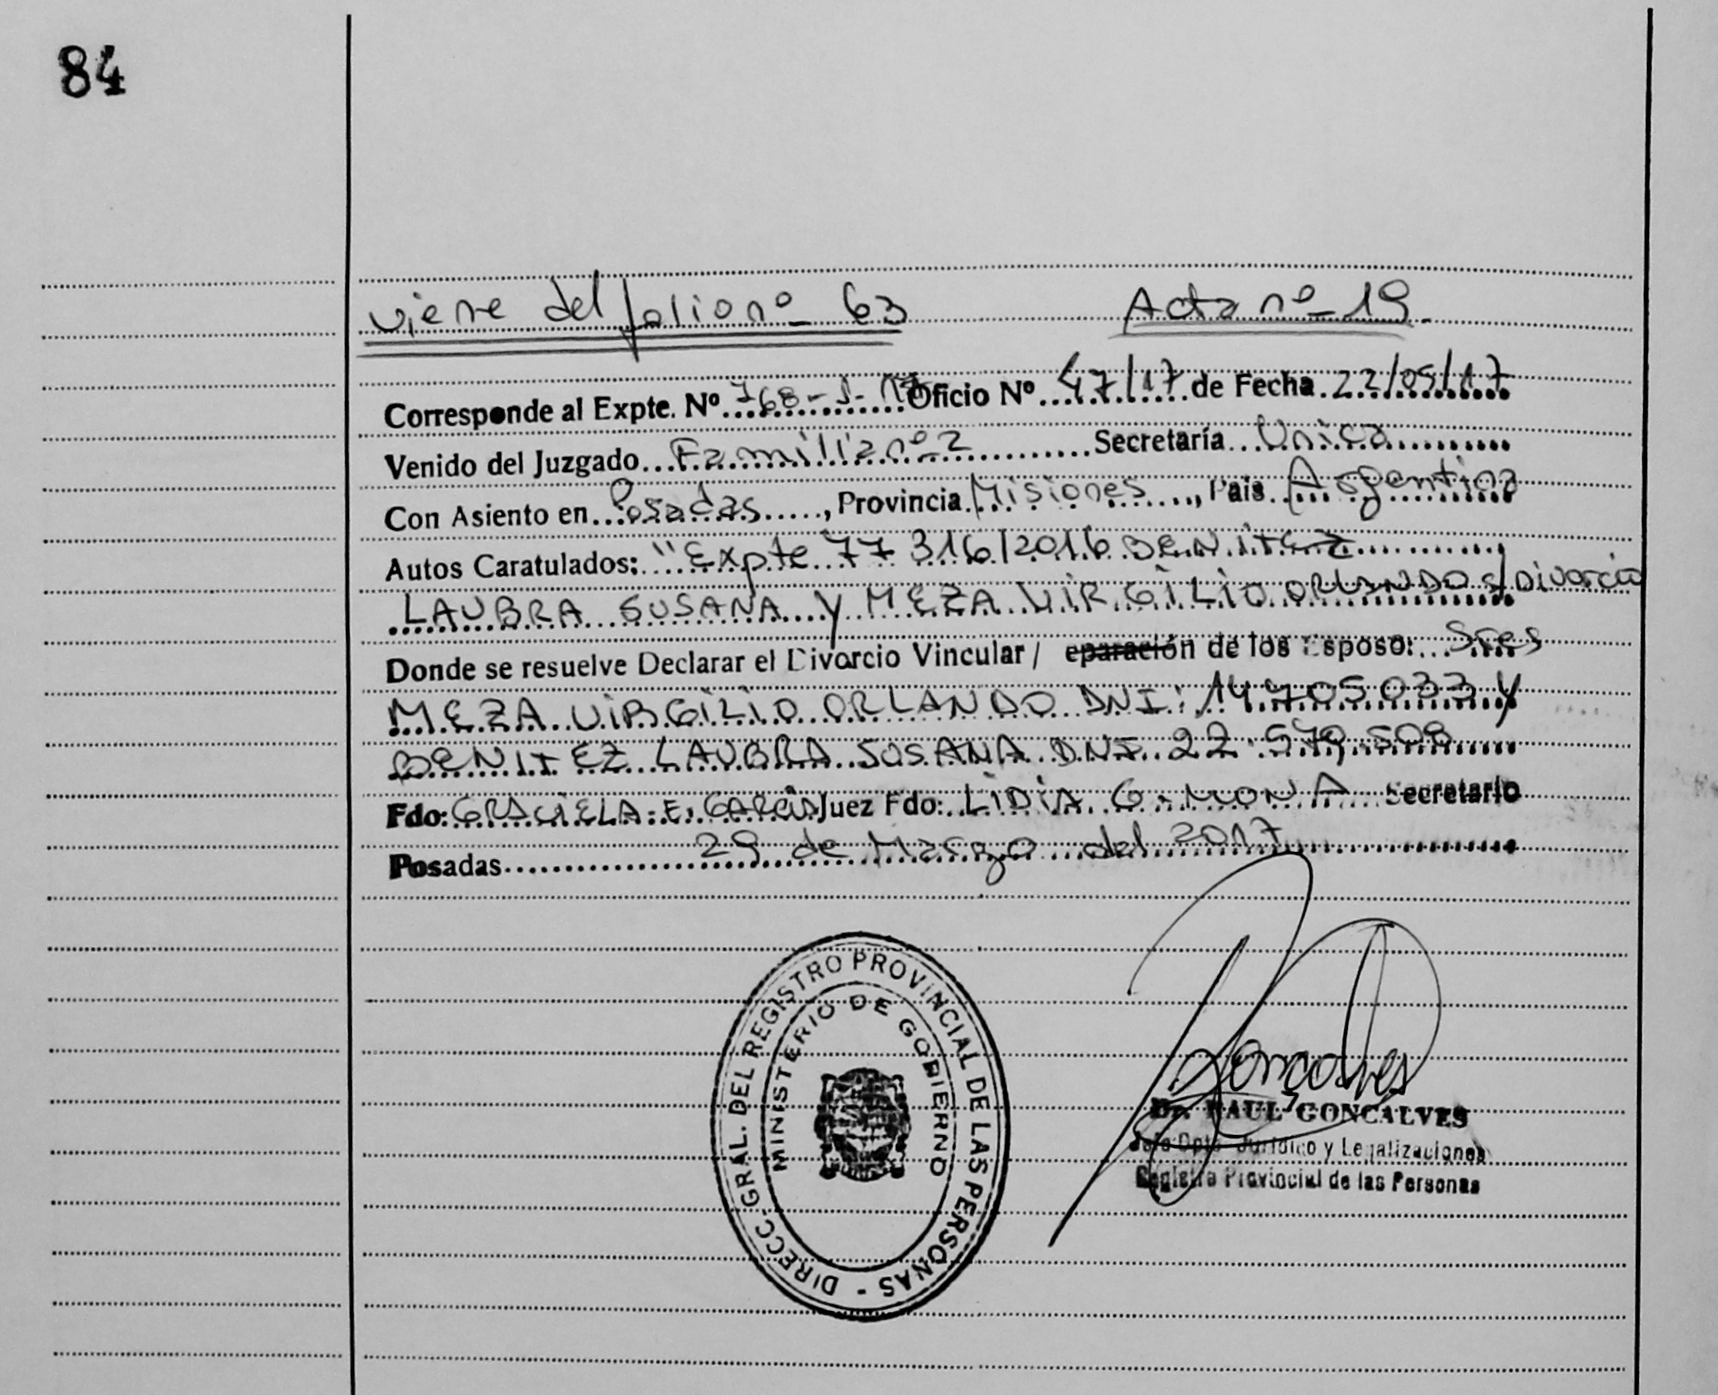 84
viene del folio nº 63 Acta nº 19.
Corresponde al Expte. Nº 768-J-17 Oficio Nº 47/17 de Fecha 22/05/17
Venido del Juzgado Familia nº 2 Secretaría Unica
Con Asiento en Posadas, Provincia Misiones, Pais Argentina
Autos Caratulados: "Expte 77 316/2016 BENITEZ
LAUBRA SUSANA Y MEZA VIRGILIO ORLANDO s/Divorcio
Donde se resuelve Declarar el Divorcio Vincular / eparación de los Esposo: Sres
MEZA VIRGILIO ORLANDO DNI: 14.705.033 Y
BENITEZ LAUBRA SUSANA DNI 22.579.508
Fdo: GRACIELA E. GARCIA Juez Fdo: LIDIA G. MONA Secretario
Posadas 29 de Marzo del 2017
DIRECC. GRAL. DEL REGISTRO PROVINCIAL DE LAS PERSONAS -
MINISTERIO DE GOBIERNO
Gonçalves
Dr. RAUL GONCALVES
Jefe Dpto. Jurídico y Legalizaciones
Registro Provincial de las Personas